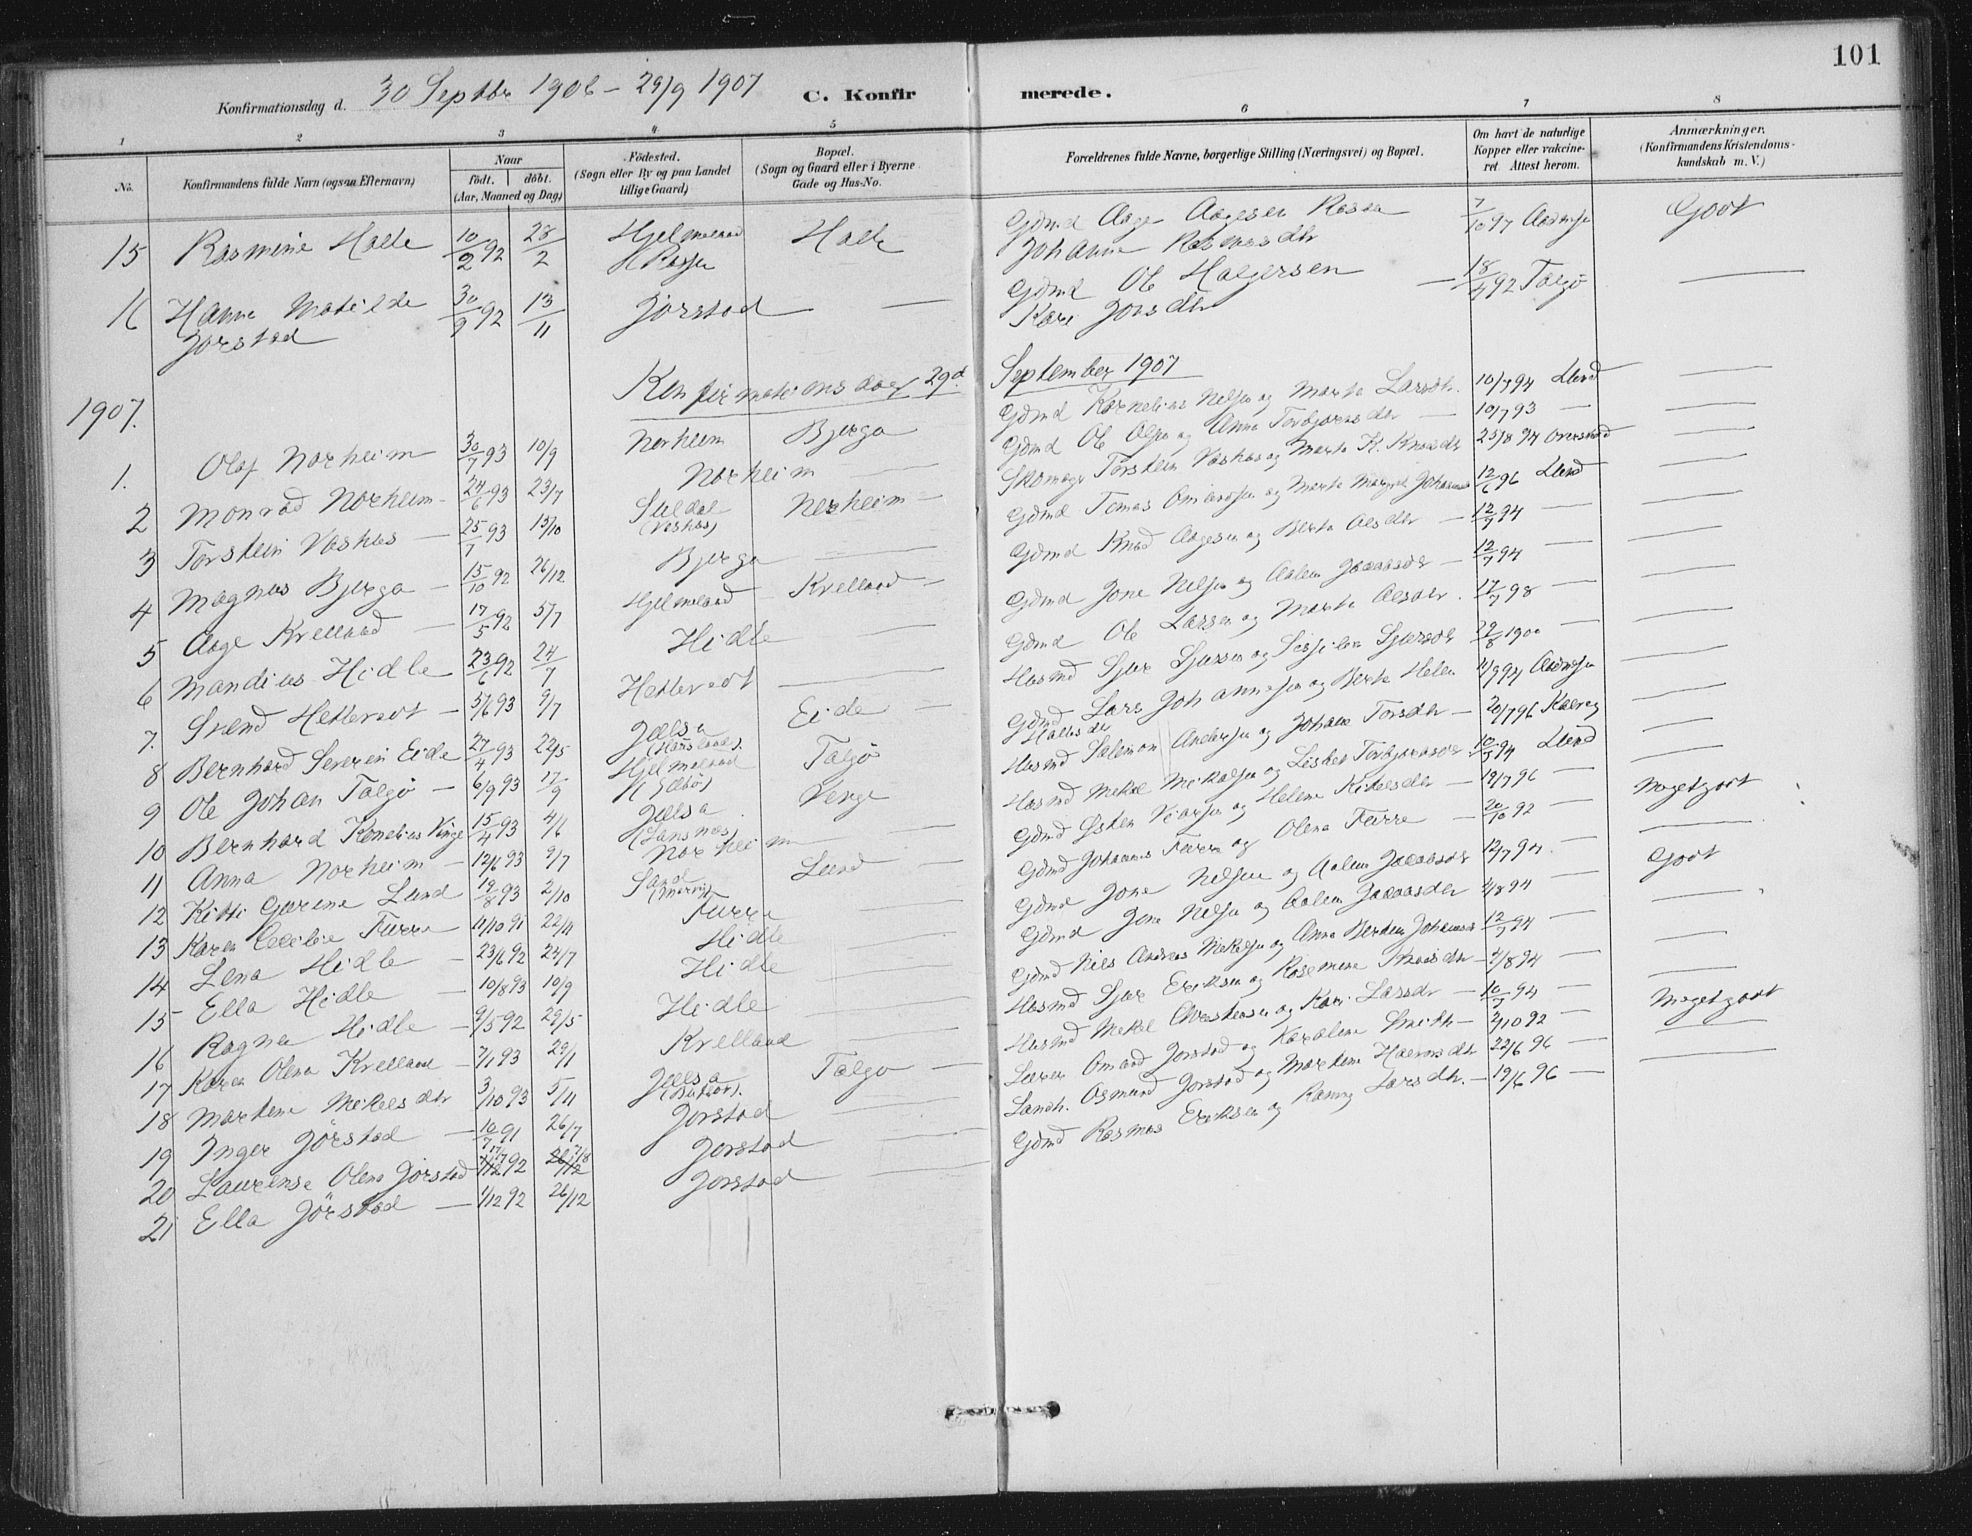 101
Konfirmationsdag d. 30 Septbr 1906 - 29/9 1907 C. Konfir merede.
1 2 3 4 5 6 7 8
No. Konfirmandens fulde Navn (ogsaa Efternavn) Naar födt. döbt. (Aar, Maaned og Dag) Födested. (Sogn eller By og paa Landet tillige Gaard) Bopæl. (Sogn og Gaard eller i Byerne Gade og Hus-No. Forældrenes fulde Navne, borgerlige Stilling (Næringsvei) og Bopæl. Om havt de naturlige Kopper eller vakcineret. Attest herom. Anmærkninger. (Konfirmandens Kristendomskundskab m. V.)
15 Rasmine Halle 10/2 92 28/2 Hjelmeland Halle Gdmd Aage Aagesen 7/10 97 Godt
Johanne Rasmusdtr
16 Hanne Matilde Jørstad 30/9 92 13/11 Jørstad — Gdmd Ole Halgersen — 18/4 92 Talgø —
Kari Jonsdtr
1907. Konfirmationsdag 29d September 1907
Gdmd Kornelius Nelsen og Marta Larsdtr. 10/7 94 Lund —
1. Olaf Norheim 30/7 93 10/9 Norheim Bjerga Gdmd Ole Olsen og Anna Torbjørnsdtr — 10/7 93 — —
2 Monrad Norheim — 24/6 93 23/7 Norheim — Skomager Torstein Vashus og Marta K. Knudsdtr 25/8 94 —
3 Torstein Vashus — 25/7 93 15/10 Suldal (Vashus) Norheim — Gdmd Tomas Omundsen og Marta Margrete 12/6 96 Lund —
4 Magnus Bjerga — 15/10 92 26/12 Bjerga — Gdmd Knud Aagesen og Berta Olsdtr — 12/7 94 — —
5 Aage Krelland — 17/5 92 5/7 Hjelmeland Krelland — Gdmd Jone Nelsen og Aalen Jacobsdtr — 12/7 94 — —
6 Mandius Hidle 23/6 92 24/7 Hidle — Gdmd Ole Larsen og Marta Olsdtr. 17/7 98 — —
7. Svend Hettervot — 5/6 93 9/7 Hettervot — Husmd Sjur Sjursen og Sissilia Sjursdtr 22/6 1900 — —
8 Bernhard Severin Eide 27/4 93 22/5 Jælsa Eide — Gdmd Lars Johannesen og Berta Helen
9 Ole Johan Talgø — 6/9 93 17/9 Hjelmeland Talgø Husmd Salomon Andersen og Johanne Torsdtr — 20/7 96
10 Bernhard Kornelius Vinge 15/4 93 4/6 Jælsa Venge Husmd Mikal Mikalsen og Lisbet Torbjørnsdtr 10/7 94 Lund —
11 Anna Norheim — 12/6 93 9/7 Norheim — 19/7 96 — Megetgodt
12 Kitti Gurine Lund 19/8 93 2/10 Sand Lund — Gdmd Johannes Furre og Olena Furre — 20/10 92 — —
13 Karen Cecilie Furre — 11/10 91 22/11 Furre — Gdmd Jone Nelsen og Aalen Jacobsdtr 12/7 94 — Godt
14 Lena Hidle — 23/6 92 24/7 Hidle — Gdmd Jone Nelsen og Aalen Jacobsdtr 4/8 94 — —
15 Ella Hidle — 10/8 93 10/9 Hidle — Gdmd Nils Andreas Mikalsen og Anna 12/7 94 — —
16 Ragna Hidle — 9/5 92 29/5 Hidle — Husmd Sjur Eriksen og Rasmine Knudsdtr — 4/8 94 — —
17 Karen Olena Krelland — 7/1 93 29/1 Krelland — Husmd Mikal og Kari Larsdtr — 10/7 94 — Megetgodt
18 Martine Mikalsdtr 3/10 93 5/11 Jælsa Talgø — Lærer Omund Jørstad og Karoline Smith — 2/10 92 — —
19 Inger Jørstad — 10/7 91 26/7 Jørstad — Landh. Osmund Jørstad og Martine 22/6 96 — —
20 Laurense Olena Jørstad 92 Jorstad — Gdmd Rasmus Eriksen og Larsdtr. — 19/6 96 —
21 Ella Jørstad — 1/12 92 26/12 Jorstad —